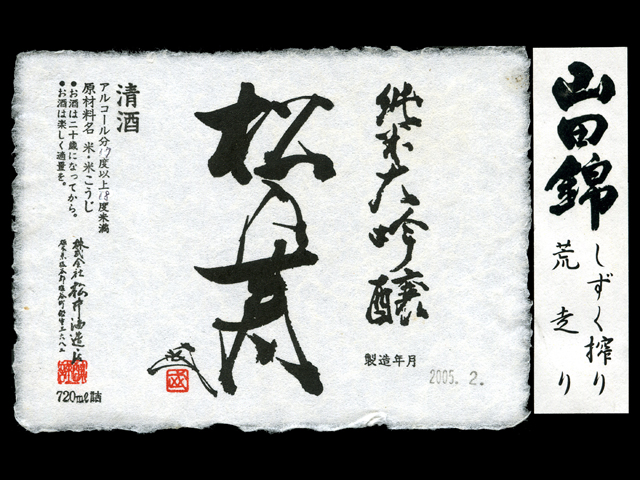 山田錦
しずく搾り
荒走り
純米大吟醸
製造年月
2005. 2.
松の寿
清酒
アルコール分17度以上18度未満
原材料名 米・米こうじ
●お酒は二十歳になってから。
●お酒は楽しく適量を。
株式会社 松井酒造店
栃木県塩谷郡塩谷町船生三六八三
720mℓ詰